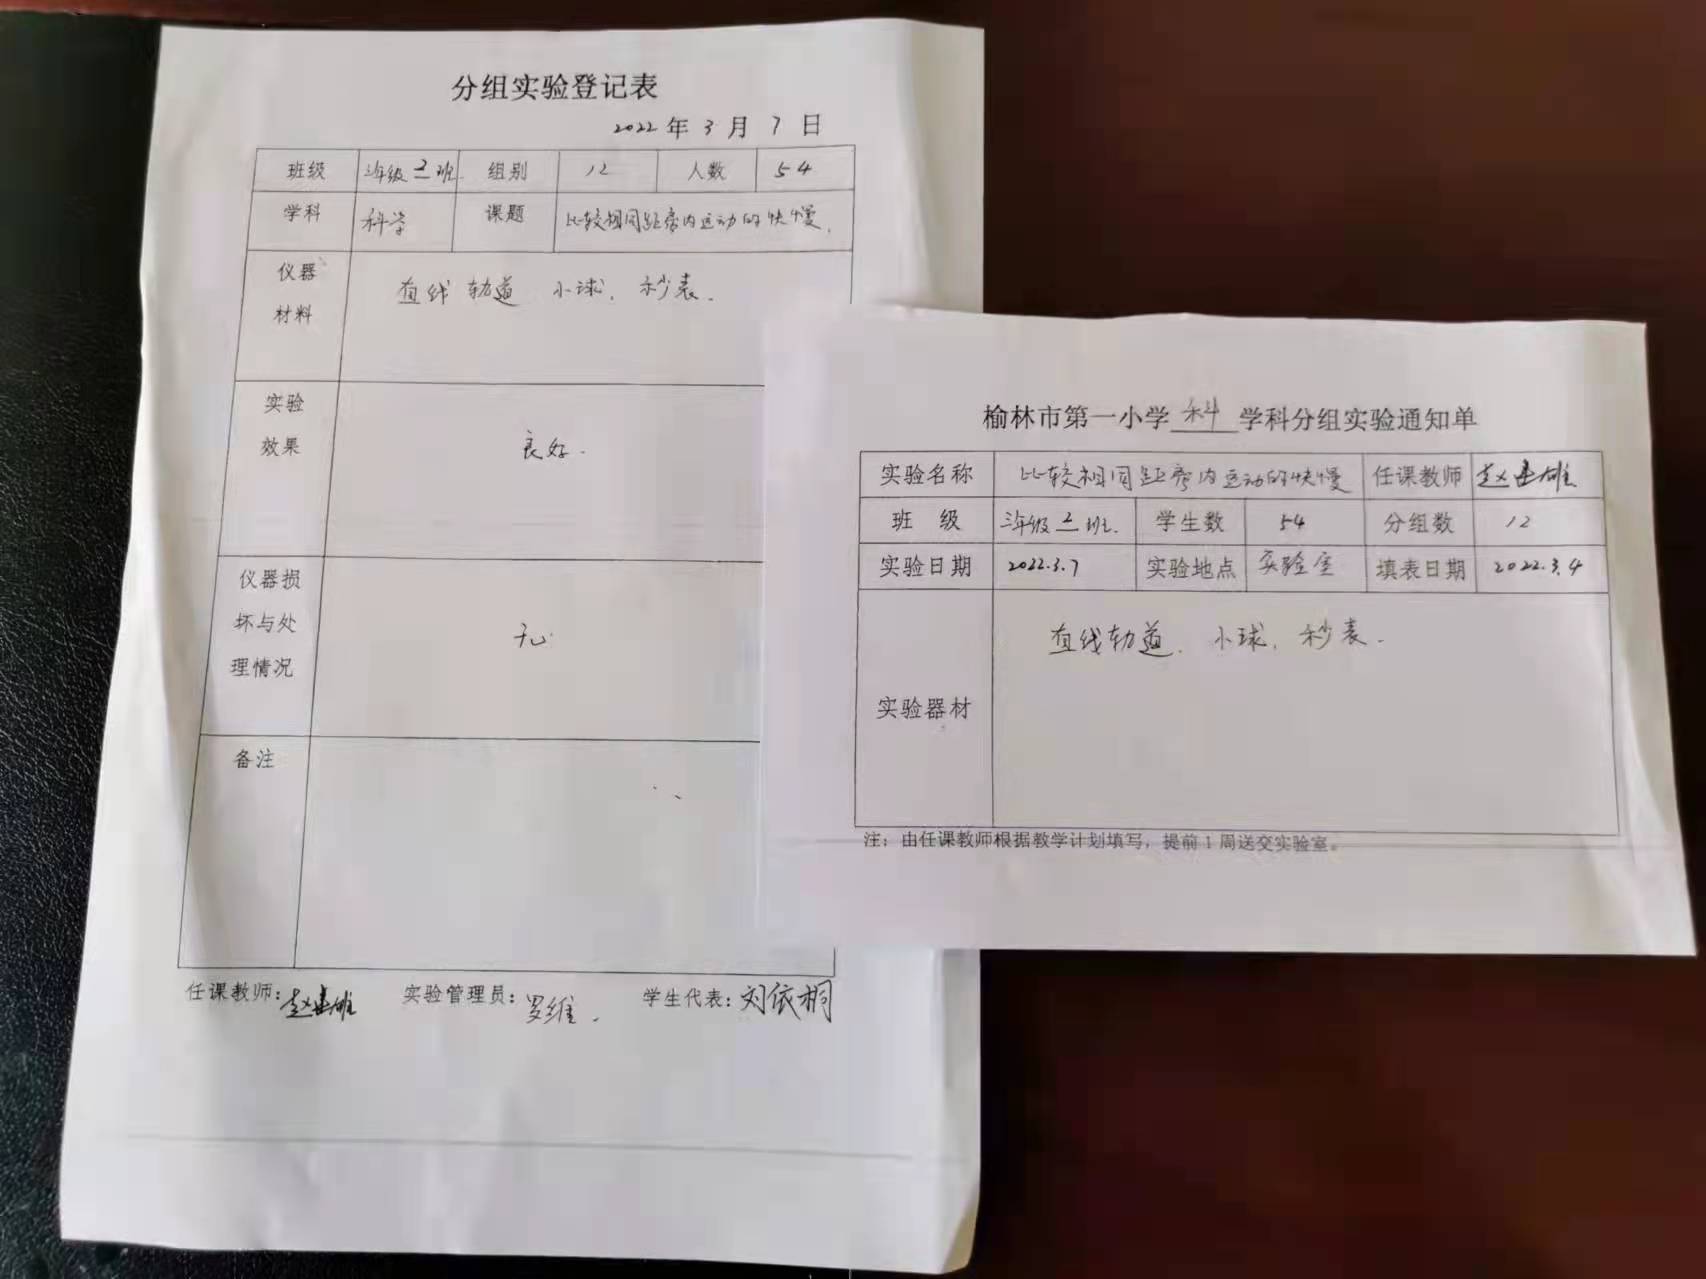 分组实验登记表
2022 年 3 月 7 日
班级 三年级 班 组别 12 人数 54
学科 科学 课题 比较相同距离内运动的快慢.
仪器
材料
直线轨道 小球. 秒表.
实验
效果
良好.
仪器损
坏与处
理情况
无
备注
任课教师: 赵建雄 实验管理员: 罗维. 学生代表: 刘依桐
榆林市第一小学 科 学科分组实验通知单
实验名称 比较相同距离内运动的快慢 任课教师 赵建雄
班 级 三年级 班. 学生数 54 分组数 12
实验日期 2022.3.7 实验地点 实验室 填表日期 2022.3.4
实验器材 直线轨道. 小球. 秒表.
注：由任课教师根据教学计划填写，提前 1 周送交实验室。